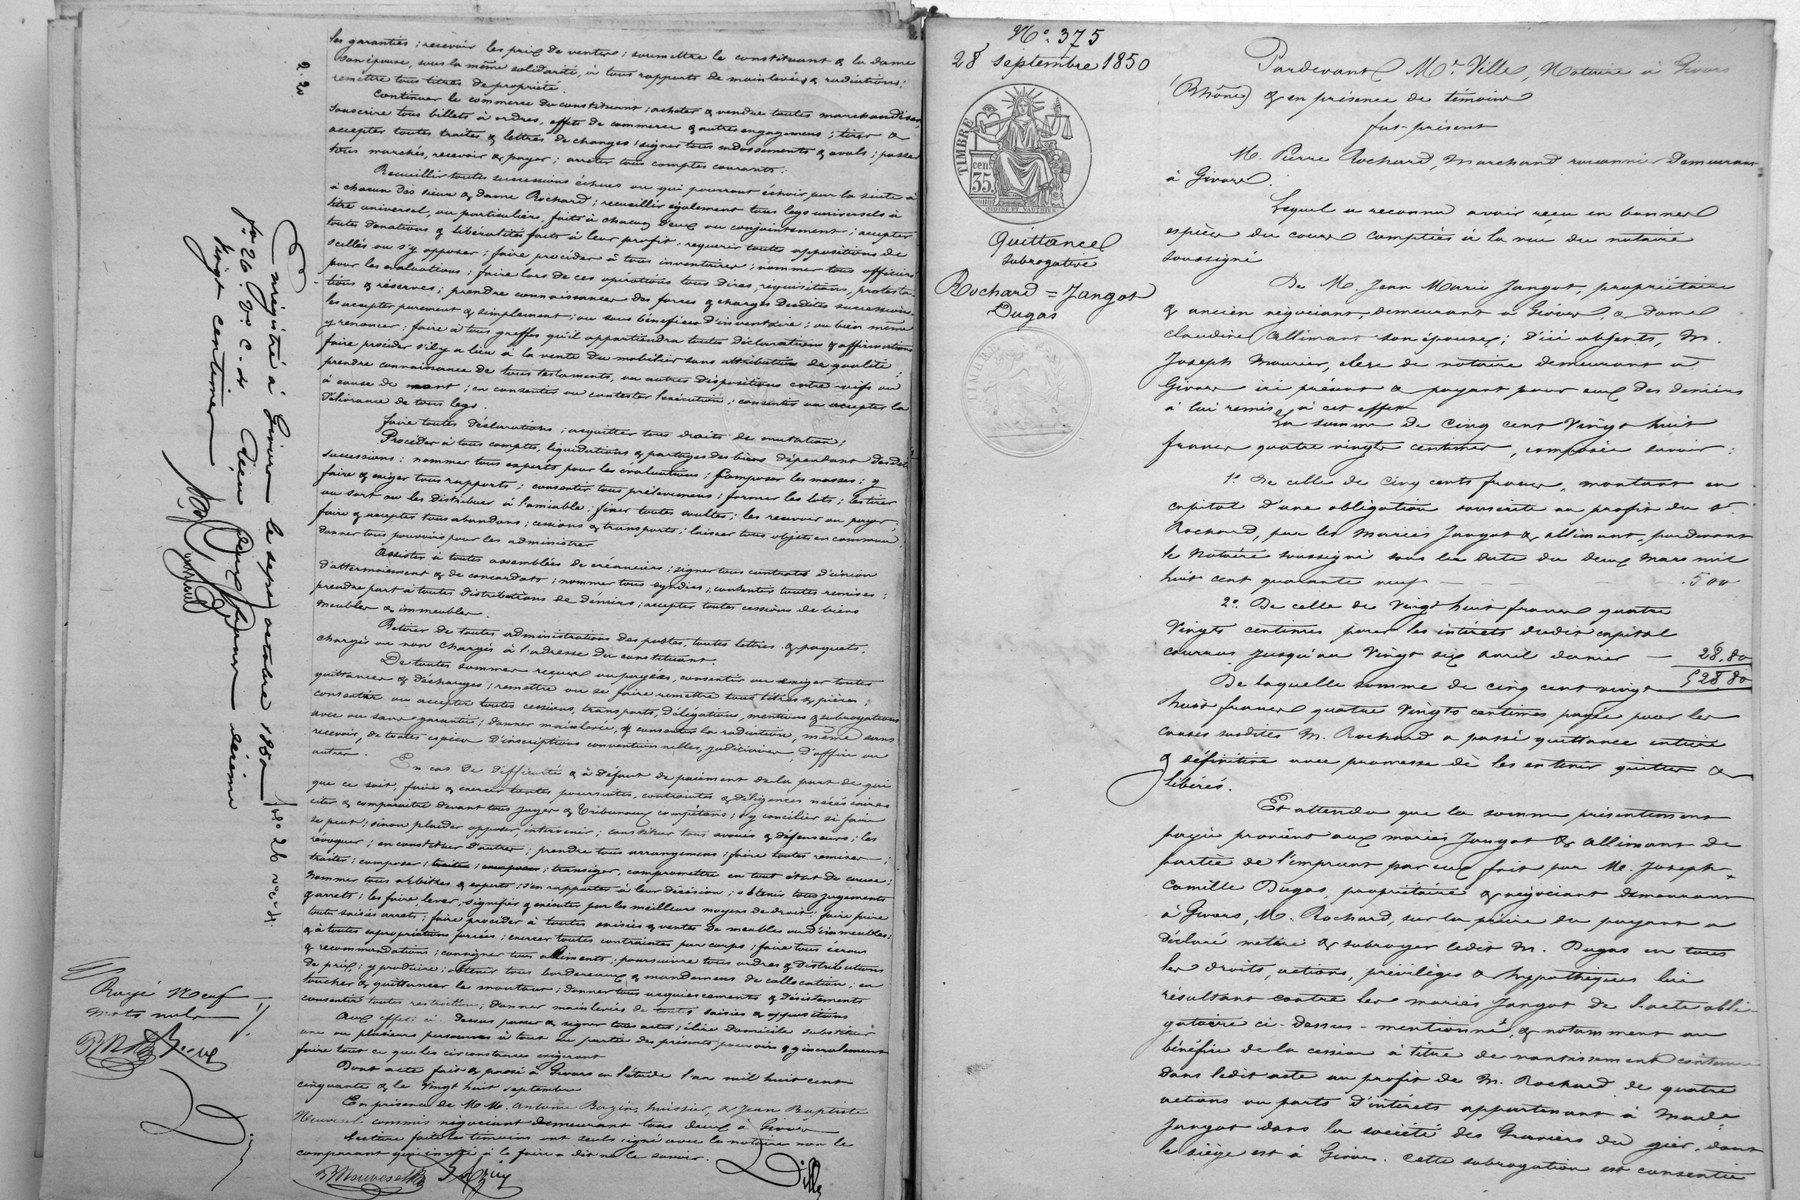 les garanties ; recevoir les prix de ventes ; soumettre le constituant & la dame
son épouse, sous la même solidarité, à tous rapports de mainlevées & radiations ;
remettre tous titres de propriété.
Continuer le commerce du constituant ; acheter & vendre toutes marchandises,
souscrire tous billets à ordres, effets de commerce & autres engagemens ; tirer &
accepter toutes traites & lettres de changes ; signer tous endossements & avals ; passer
tous marchés, recevoir & payer ; arrêter tous comptes courants.
Recueillir toutes successions échues ou qui pourront échoir par la suite à
à chacun des sieur & dame Rochard ; recueillir également tous legs universels à
titre universel, ou particuliers, faits à chacun d'eux ou conjointement ; accepter
toutes donations & libéralités faits à leur profit ; requérir toutes appositions de
scellés ou s'y opposer ; faire procéder à tous inventaires ; nommer tous officiers
pour les évaluations ; faire lors de ces opérations tous dires, requisitions, protesta-
tions & réserves ; prendre connaissance des forces & charges desdites successions,
les accepter purement & simplement ; ou sous bénéfice d'inventaire ; ou bien même
y renoncer ; faire à tous greffes qu'il appartiendra toutes déclarations & affirmations
faire procéder s'il y a lieu à la vente du mobilier sans attribution de qualité ;
prendre connaissance de tous testaments, ou autres dispositions entre-vifs ou
à cause de mort ; en consentir ou contester l'exécution ; consentir ou accepter la
délivrance de tous legs.
faire toutes déclarations ; acquitter tous droits de mutation ;
Procéder à tous comptes, liquidations & partages des biens dépendant desdites
successions ; nommer tous experts pour les évaluations ; composer les masses ; y
faire & exiger tous rapports ; consentir tous prélevemens ; former les lots ; les tirer
au sort ou les distribuer à l'amiable ; fixer toutes soultes ; les recevoir ou payer,
faire & accepter tous abandons ; cessions & transports ; laisser tous objets en commun,
donner tous pouvoirs pour les administrer
Assister à toutes assemblées de créanciers ; signer tous contrats d'union
d'attermoiement & de concordats ; nommer tous syndics ; consentir toutes remises ;
prendre part à toutes distributions de deniers ; accepter toutes cessions de biens
meubles & immeubles.
Retirer de toutes administrations des postes, toutes lettres & paquets,
chargés ou non chargés à l'adresse du constituant.
De toutes sommes reçues ou payées, consentir ou exiger toutes
quittances & décharges ; remettre ou se faire remettre tous titres & pièces ;
consentir ou accepter toutes cessions, transports, délégation, mentions & subrogations
avec ou sans garantie ; donner mainlevée, & consentir la radiation, même sans
recevoir, de toutes espèces d'inscriptions conventionnelles, judiciaires, d'office ou
autres.
En cas de difficulté & à défaut de paiement de la part de qui
que ce soit, faire & exercer toutes poursuites, contraintes & diligences nécéssaires
citer & comparaitre devant tous juges & tribunaux compétens ; s'y concilier si faire
se peut ; sinon plaider opposer, intervenir ; constituer tous avoués & défenseurs ; les
révoquer ; en constituer d'autres ; prendre tous arrangemens ; faire toutes remises ;
traiter ; composer ; traiter ; composer ; transiger, compromettre en tout état de cause ;
nommer tous arbitres & experts ; s'en rapporter à leur décision ; obtenir tous jugements
& arrets ; les faire lever, signifier & exécuter par les meilleurs moyens de droit ; faire faire
toutes saisies arrets ; faire procéder à toutes saisies & ventes de meubles ou d'immeubles ;
& à toutes expropriations forcées ; exercer toutes contraintes par corps ; faire tous écrous
& recommandations ; consigner tous aliments ; poursuivre tous ordres & distributions
de prix ; y produire ; obtenir tous bordereaux & mandemens de collocation ; en
toucher & quittancer le montant ; donner tous acquiescements & désistements
consentir toutes restrictions ; donner mainlevées de tous saisies & oppositions
Aux effets ci-dessus passer & signer tous actes ; élire domicile substituer
une ou plusieurs personnes à tout ou partie des présents pouvoirs & généralement
faire tout ce que les circonstances exigeront
Dont acte fait & passé à Givors en l'étude l'an mil huit cent
cinquante & le vingt huit septembre
En présence de M.M. Antoine Bazin, huissier, & Jean Baptiste
commis négociant demeurant tous deux à Givors
Lecture faite les témoins ont seuls signé avec le notaire non le
comparant qui invité à le faire a dit ne le savoir.
Ville
2.20
Enregistré à Givors le sept octobre 1850
fo. 26. vo. c. 4. Reçu deux francs décime
vingt centimes
fo 26 vo c 4
Rayé neuf
mots nuls
No. 375
28 septembre 1850
TIMBRE
cen.
35.
Quittance
subrogative
Rochard = Jangot
Dugas
Pardevant Me. Ville, Notaire à Givors
(Rhône) & en présence de témoins
fut-présent
M. Pierre Rochard, marchand demeurant
à Givors.
Lequel a reconnu avoir reçu en bonnes
espèces du cours comptées à la vue du notaire
soussigné
De M. Jean Marie Jangot, propriétaire
& ancien négociant demeurant à Givors, & dame
claudine Allimant son épouse ; d'ici absents, M.
Joseph Mourier, clerc de notaire demeurant à
Givors ici présent & payant pour eux des deniers
à lui remis à cet effet
La somme de cinq cent vingt huit
francs quatre vingts centimes, composée savoir :
1o. De celle de cinq cents francs, montant en
capital d'une obligation souscrite au profit du sr.
Rochard, par les mariés Jangot & allimant, pardevant
le notaire soussigné sous la date du deux mars mil
huit cent quarante neuf - - - 500
2o. De celle de vingt huit francs quatre
vingts centimes pour les intérêts dudit capital
courus jusqu'au vingt six avril dernier - 28.80
528.80
De laquelle somme de cinq cent vingt
huit francs quatre vingts centimes payée pour les
causes susdites M. Rochard a passé quittance entière
& définitive avec promesse de les en tenir quittes &
libérés.
Et attendu que la somme présentement
payée provient aux mariés Jangot & Allimant de
partie de l'emprunt par eux fait par M. Joseph-
Camille Dugas, propriétaire & négociant demeurant
à Givors, M. Rochard, sur la prière du payant a
déclaré mettre & subroger ledit M. Dugas en tous
les droits, actions, privilèges & hypothèques lui
résultant contre les mariés Jangot de l'acte obli-
gatoire ci-dessus-mentionné, & notamment au
bénéfice de la cession à titre de nantissement contenue
dans ledit acte au profit de M. Rochard de quatre
actions ou parts d'intérets appartenant à Made.
Jangot dans la société des Graviers du gier, dont
le siège est à Givors. Cette subrogation est consentie